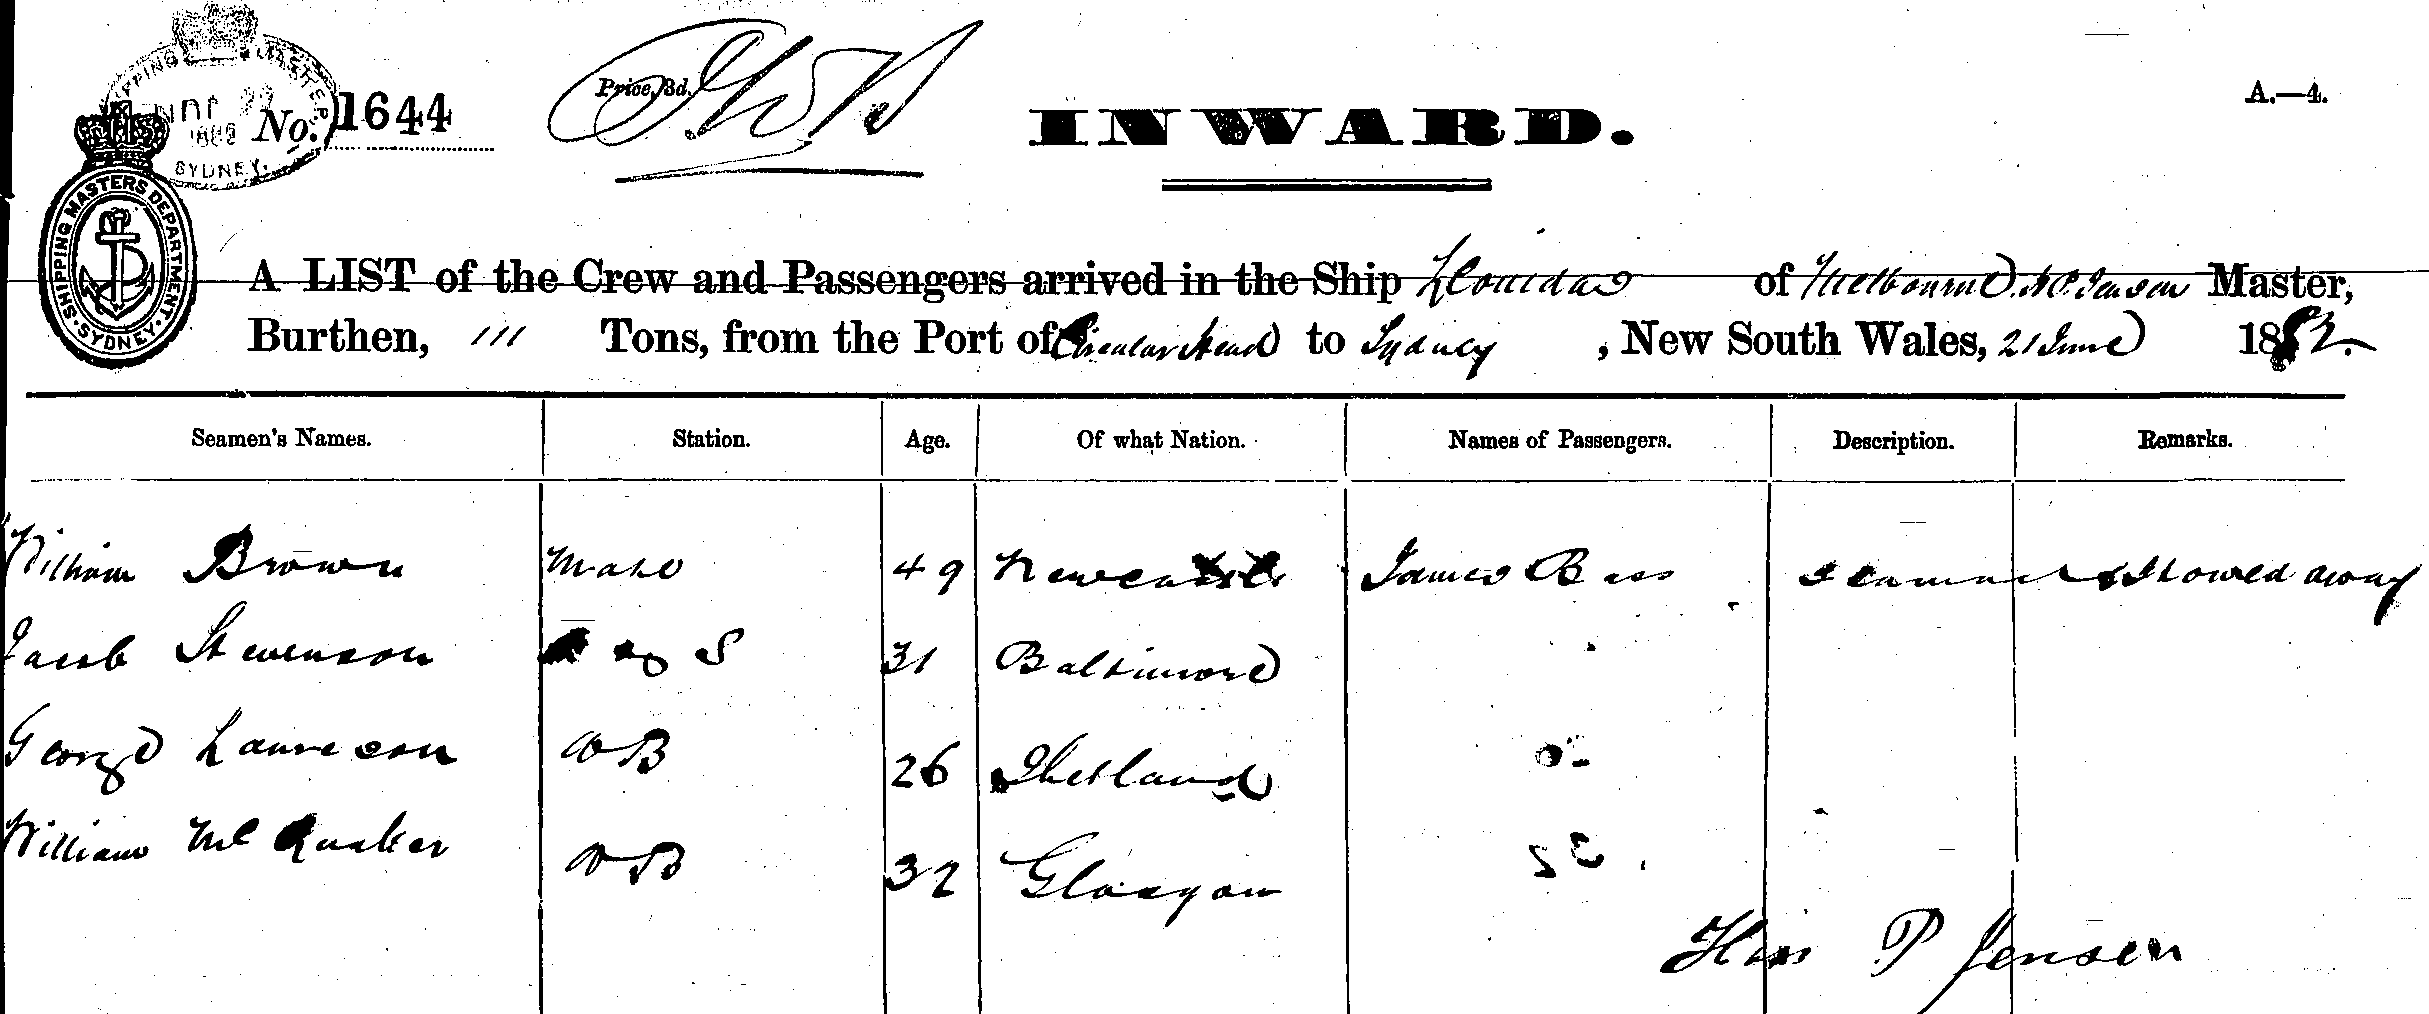 SHIPPING MASTER
JUN 22
1882
SYDNEY.
No. 1644
Price, 3d.
INWARD.
A.—4.
SHIPPING MASTERS DEPARTMENT. SYDNEY.
A LIST of the Crew and Passengers arrived in the Ship Leonidas of Melbourne H P Jensen Master,
Burthen, 111 Tons, from the Port of Circular Head to Sydney, New South Wales, 21 June 1882.
Seamen's Names. Station. Age. Of what Nation. Names of Passengers. Description. Remarks.
William Brown Mate 49 Newcastle James Bass seaman stowed away
Jacob Stevenson S 31 Baltimore
George Laurenson AB 26 Shetland
William McQuaker AB 32 Glasgow
Hans P Jensen